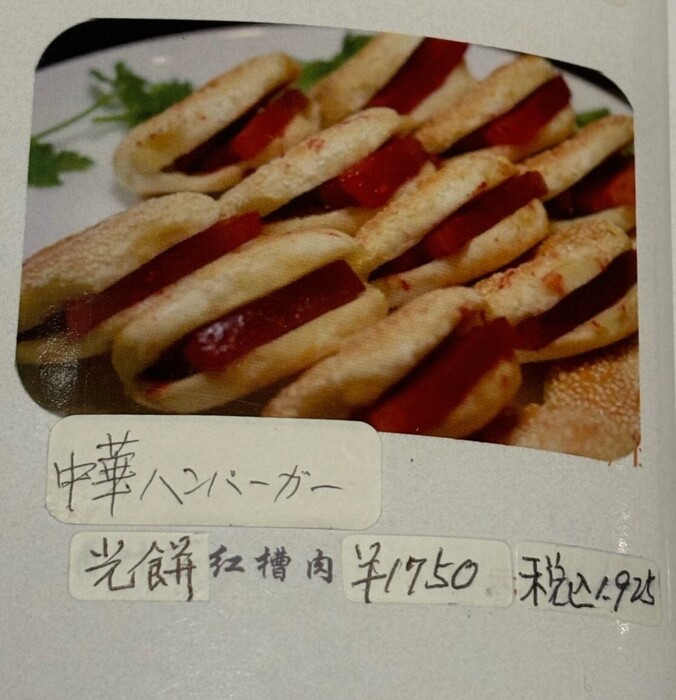 中華ハンバーガー
光餅 紅槽肉 ¥1750 税込1.925